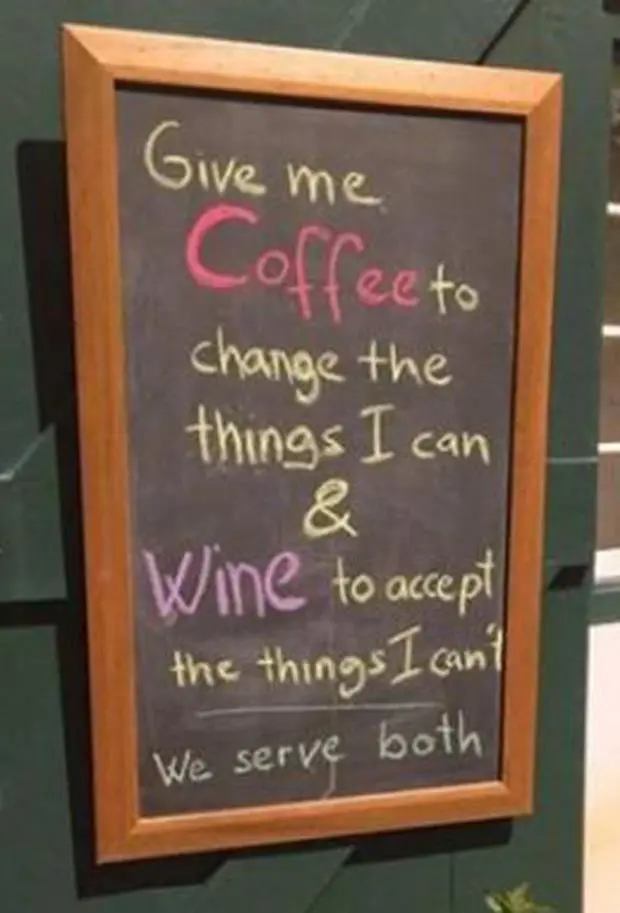 Give me
Coffee to
change the
things I can
&
Wine to accept
the things I can't
We serve both